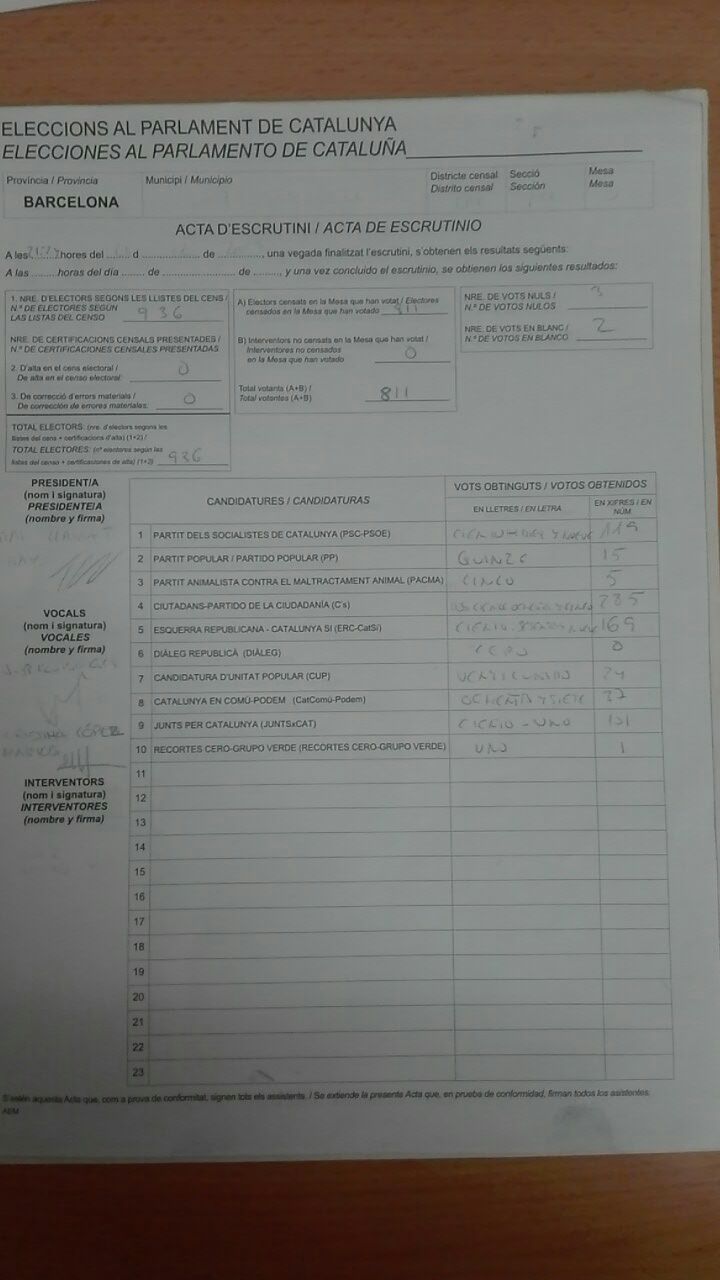 ELECCIONS AL PARLAMENT DE CATALUNYA
ELECCIONES AL PARLAMENTO DE CATALUÑA
Província / Provincia
BARCELONA
Municipi / Municipio
Districte censal
Distrito censal
Secció
Sección
Mesa
Mesa
ACTA D'ESCRUTINI / ACTA DE ESCRUTINIO
A les hores del d de , una vegada finalitzat l'escrutini, s'obtenen els resultats següents:
A las horas del día de de , y una vez concluido el escrutinio, se obtienen los siguientes resultados:
1. NRE. D'ELECTORS SEGONS LES LLISTES DEL CENS /
N.º DE ELECTORES SEGÚN
LAS LISTAS DEL CENSO 936
NRE. DE CERTIFICACIONS CENSALS PRESENTADES /
N.º DE CERTIFICACIONES CENSALES PRESENTADAS
2. D'alta en el cens electoral /
De alta en el censo electoral: 0
3. De correcció d'errors materials /
De corrección de errores materiales: 0
TOTAL ELECTORS: (nre. d'electors segons les
llistes del cens + certificacions d'alta) (1+2) /
TOTAL ELECTORES: (nº electores según las
listas del censo + certificaciones de alta) (1+2) 936
A) Electors censats en la Mesa que han votat / Electores
censados en la Mesa que han votado 811
B) Interventors no censats en la Mesa que han votat /
Interventores no censados
en la Mesa que han votado 0
Total votants (A+B) /
Total votantes (A+B) 811
NRE. DE VOTS NULS /
N.º DE VOTOS NULOS 3
NRE. DE VOTS EN BLANC /
N.º DE VOTOS EN BLANCO 2
PRESIDENT/A
(nom i signatura)
PRESIDENTE/A
(nombre y firma)
VOCALS
(nom i signatura)
VOCALES
(nombre y firma)
LÓPEZ
INTERVENTORS
(nom i signatura)
INTERVENTORES
(nombre y firma)
CANDIDATURES / CANDIDATURAS
VOTS OBTINGUTS / VOTOS OBTENIDOS
EN LLETRES / EN LETRA
EN XIFRES / EN NÚM.
1 PARTIT DELS SOCIALISTES DE CATALUNYA (PSC-PSOE) 119
2 PARTIT POPULAR / PARTIDO POPULAR (PP) QUINZE 15
3 PARTIT ANIMALISTA CONTRA EL MALTRACTAMENT ANIMAL (PACMA) CINCO 5
4 CIUTADANS-PARTIDO DE LA CIUDADANÍA (C's) 285
5 ESQUERRA REPUBLICANA - CATALUNYA SÍ (ERC-CatSí) 169
6 DIÀLEG REPUBLICÀ (DIÀLEG) CERO 0
7 CANDIDATURA D'UNITAT POPULAR (CUP)
8 CATALUNYA EN COMÚ-PODEM (CatComú-Podem) OCHENTA Y SIETE
9 JUNTS PER CATALUNYA (JUNTSxCAT) CIENTO - UNO 101
10 RECORTES CERO-GRUPO VERDE (RECORTES CERO-GRUPO VERDE) UNO 1
11
12
13
14
15
16
17
18
19
20
21
22
23
S'estén aquesta Acta que, com a prova de conformitat, signen tots els assistents. / Se extiende la presente Acta que, en prueba de conformidad, firman todos los asistentes.
AEM